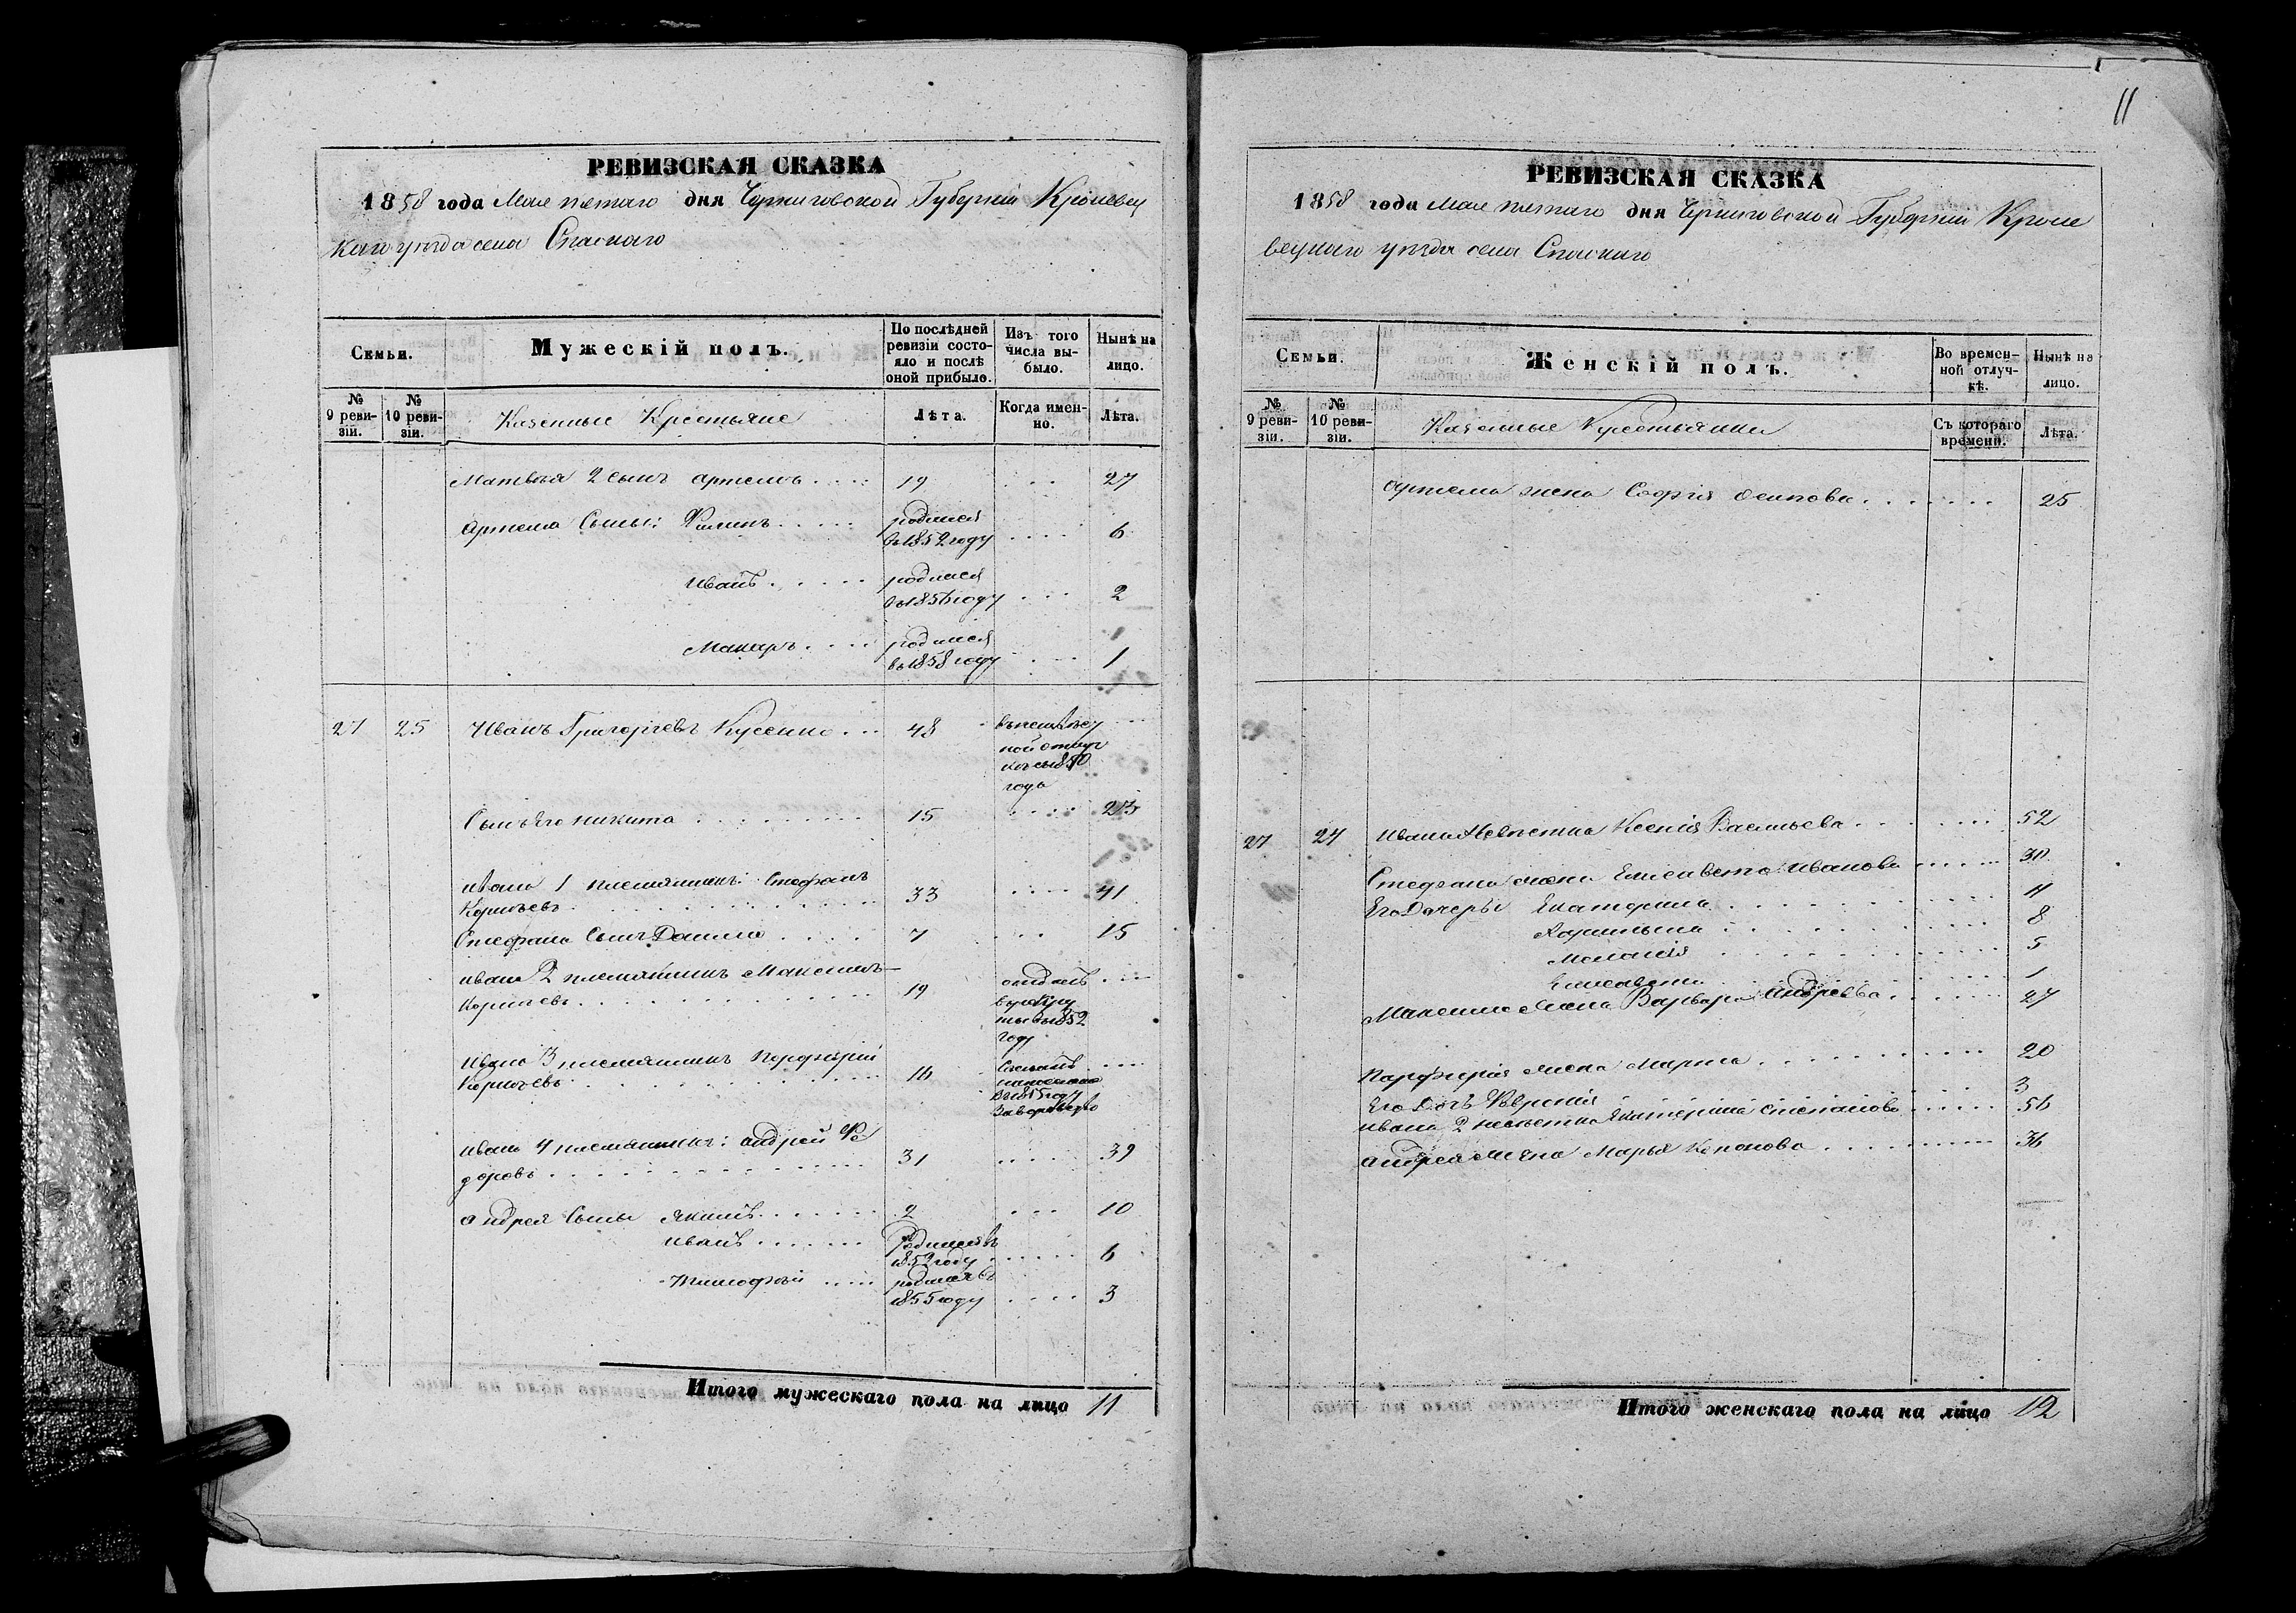 РЕВИЗСКАЯ СКАЗКА
1858 года Мая пятаго дня Черниговской Губерніи Кролевец
каго уѣзда села Спаскаго
Семьи.
Мужескій полъ.
По послѣдней ревизіи состояло и послѣ оной прибыло.
Изъ того числа выбыло.
Нынѣ на лицо.
№ 9 ревизіи.
№ 10 ревизіи.
Казенные Крестьяне
Лѣта.
Когда именно.
Лѣта.
Матвѣя 2 сынъ Артемъ 19 27
Артема Сыны: Филипъ родился въ 1852 году 6
Иванъ родился въ 1856 году 2
Макаръ родился въ 1858 году 1
27 25 Иванъ Григорьевъ 48
Сынъ Его Никита 15 23
Ивана 1 племянникъ: Стефанъ
Корнѣевъ 33 41
Стефана Сынъ Данило 7 15
Ивана 2 племянникъ Максимъ
Корнѣевъ 19 отданъ въ рекруты въ 1852 году
Ивана 3 племянникъ Порфирій
Корнѣевъ 16 Сосланъ на поселеніе въ 1855 году
Ивана 4 племянникъ: Андрей Фе
доровъ 31 39
Андрея Сыны Якимъ 2 10
Иванъ Родился въ 1852 году 6
Тимофѣй родился въ 1855 году 3
Итого мужескаго пола на лицо 11
11
РЕВИЗСКАЯ СКАЗКА
1858 года Мая пятаго дня Черниговской Губерніи Кроле
вецкаго уѣзда села Спаскаго
Семьи.
Женскій полъ.
Во временной отлучкѣ.
Нынѣ на лицо.
№ 9 ревизіи.
№ 10 ревизіи.
Казенные Крестьянки
Съ котораго времени.
Лѣта.
Артема жена Софія Осипова 25
27 27 Ивана Невѣстка Ксенія Васильева 52
Стефана жена Елисавета Иванова 30
Его Дочери Екатерина 11
8
Меланія 5
Елисавета 1
Максима Жена Варвара Андрѣева 27
Парфирія жена Марта 20
Его Дочь Февронія 3
Ивана 2 невѣстка Екатерина Степанова 56
Андрея Жена Марья 36
Итого женскаго пола на лицо 12